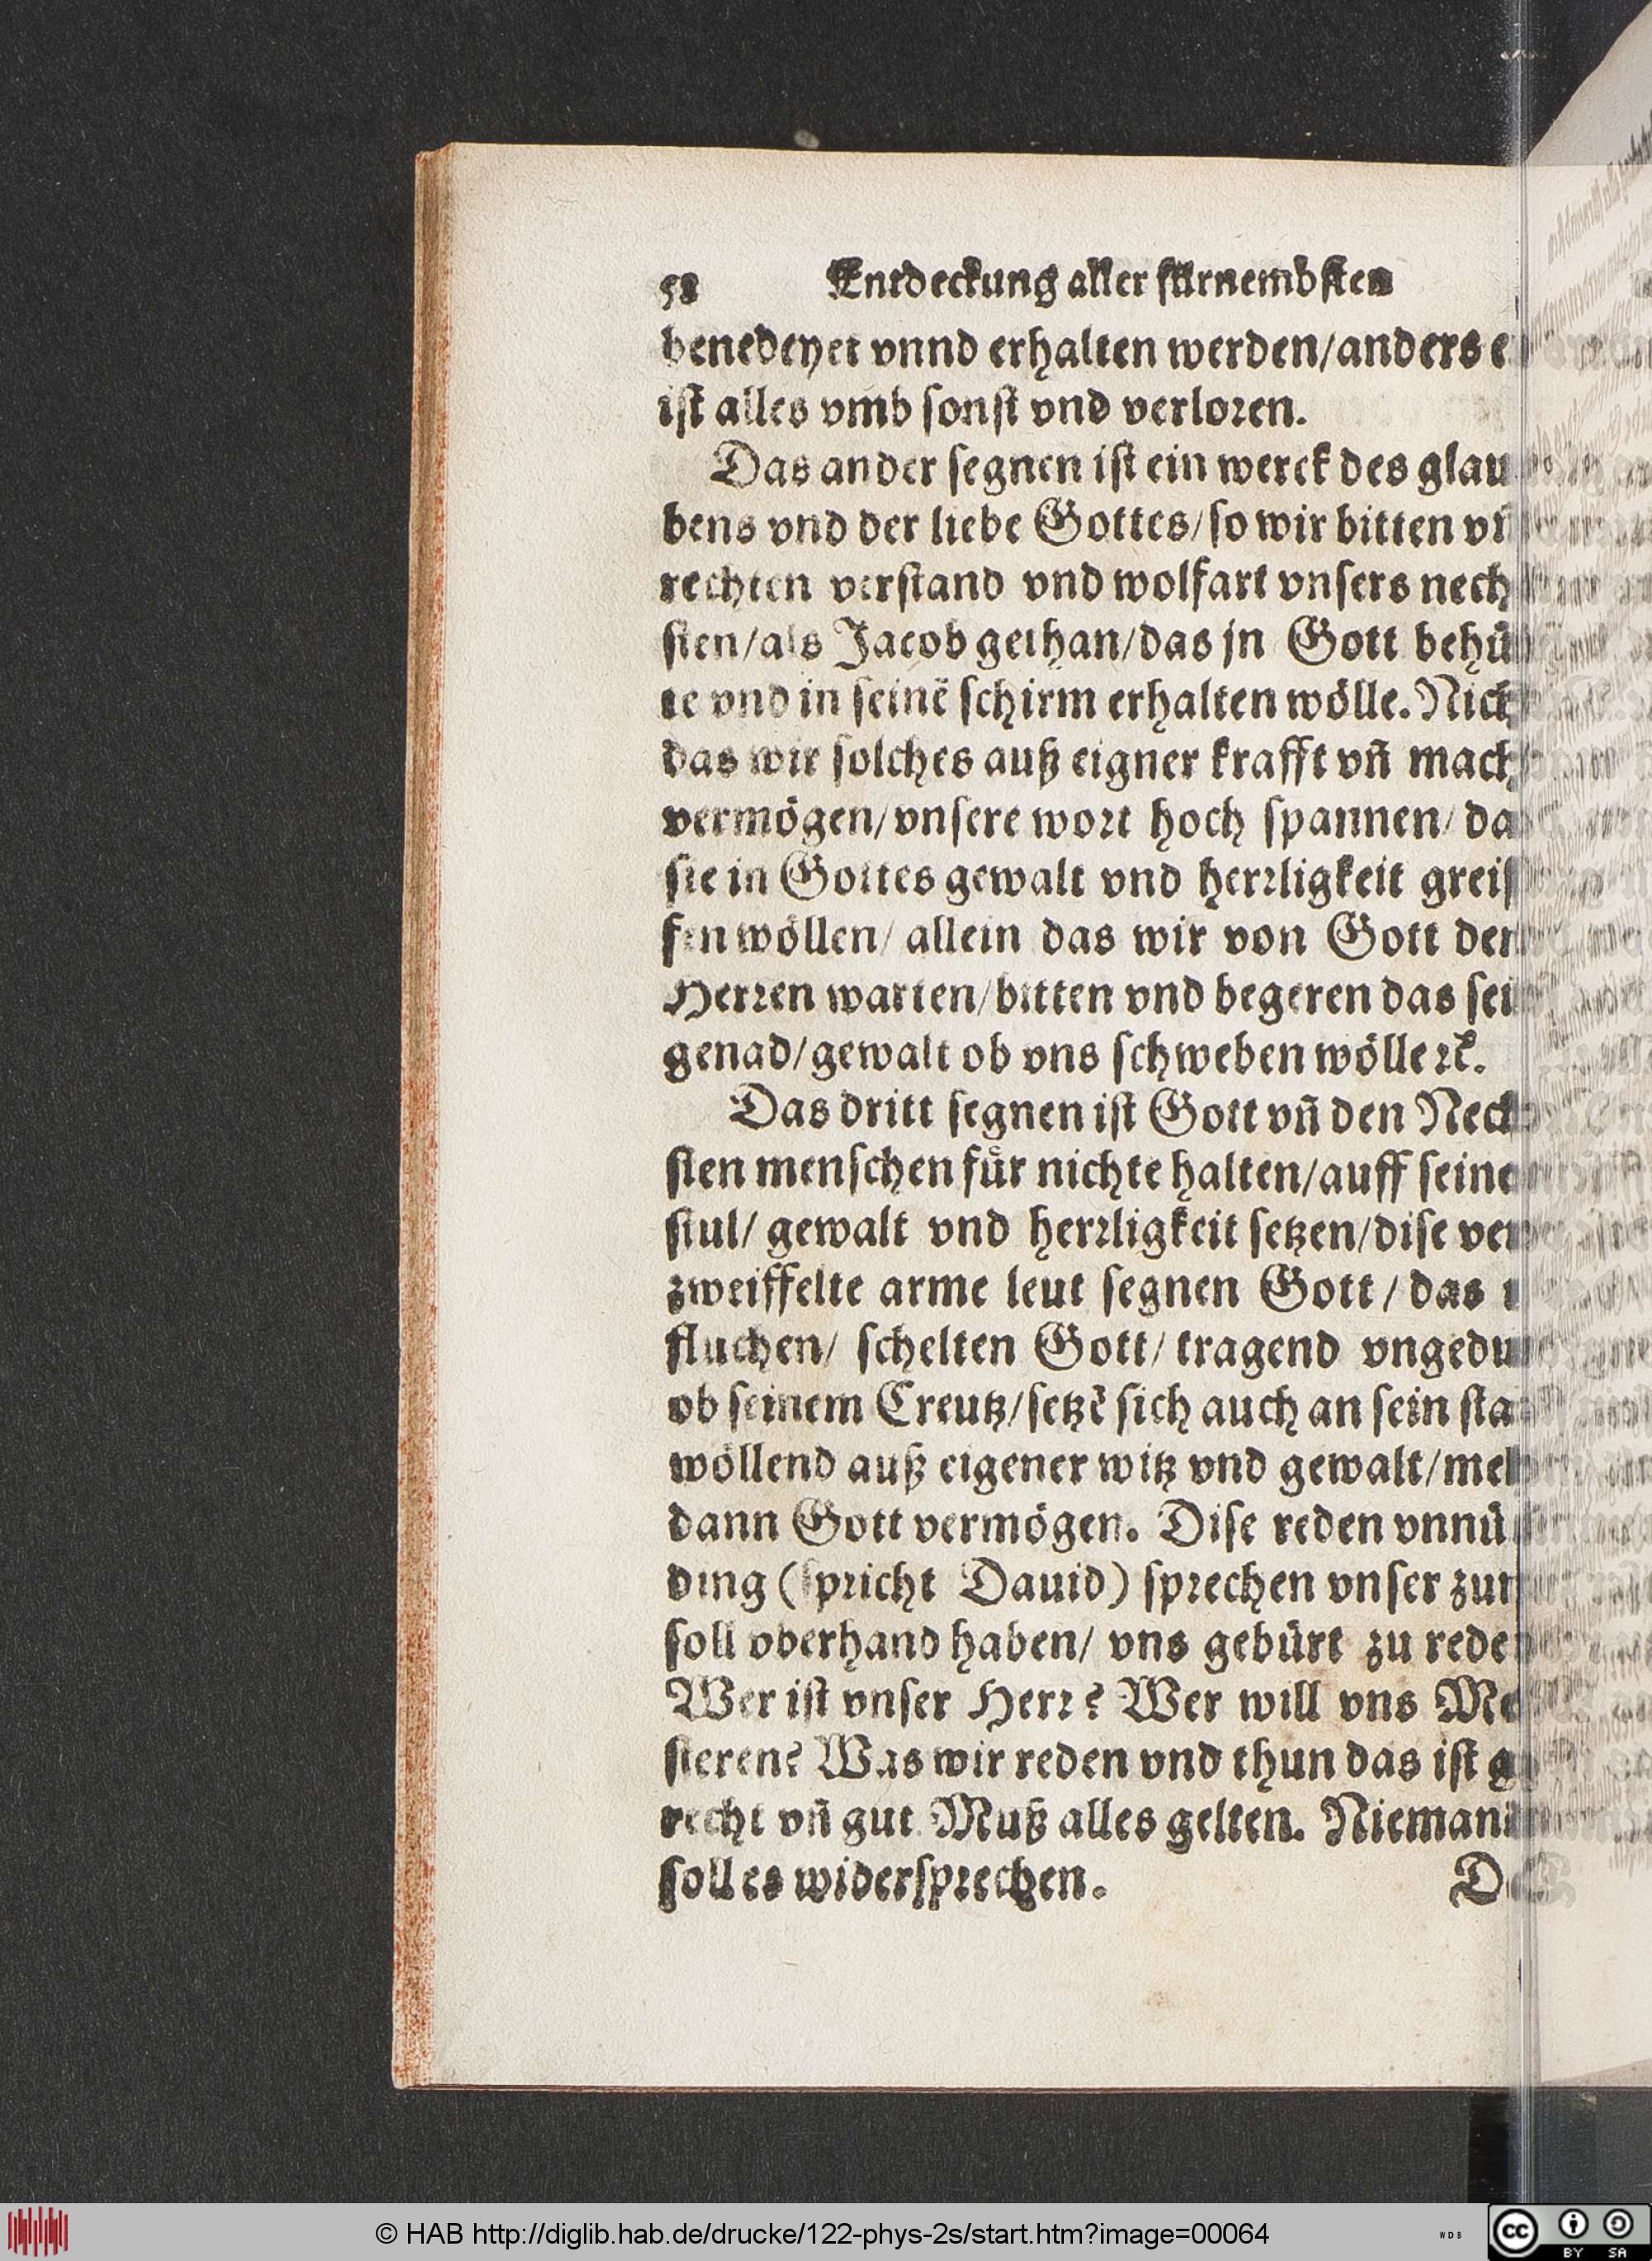 58 Entdeckung aller fürnembsten
benedeyet vnnd erhalten werden/anders
ist alles vmb sonst vnd verloꝛen.
Das ander segnen ist ein werck des glau
bens vnd der liebe Gottes/so wir bitten vñ
rechten verstand vnd wolfart vnsers nech
sten/als Jacob gethan/das jn Gott behü
te vnd in seinẽ schirm erhalten wölle. Nich
das wir solches auß eigner krafft vñ mach
vermögen/vnsere woꝛt hoch spannen/ da
sie in Gottes gewalt vnd herꝛligkeit greif
fen wöllen/ allein das wir von Gott dem
Herꝛen warten/bitten vnd begeren das sei
genad/gewalt ob vns schweben wölle ꝛc.
Das dritt segnen ist Gott vñ den Nech
sten menschen für nichte halten/auff seine
stul/ gewalt vnd herꝛligkeit setzen/dise ver
zweiffelte arme leut segnen Gott/ das
fluchen/ schelten Gott/ tragend vngedu
ob seinem Creutz/setzẽ sich auch an sein sta
wöllend auß eigener witz vnd gewalt/meh
dann Gott vermögen. Dise reden vnnü
ding (spꝛicht Dauid) spꝛechen vnser zun
soll oberhand haben/ vns gebürt zu reden
Wer ist vnser Herꝛ? Wer will vns Me
stieren? Was wir reden vnd thun das ist
recht vñ gut. Muß alles gelten. Niemand
soll es widerspꝛechen.
© HAB http://diglib.hab.de/drucke/122-phys-2s/start.htm?image=00064
WDB
cc BY SA